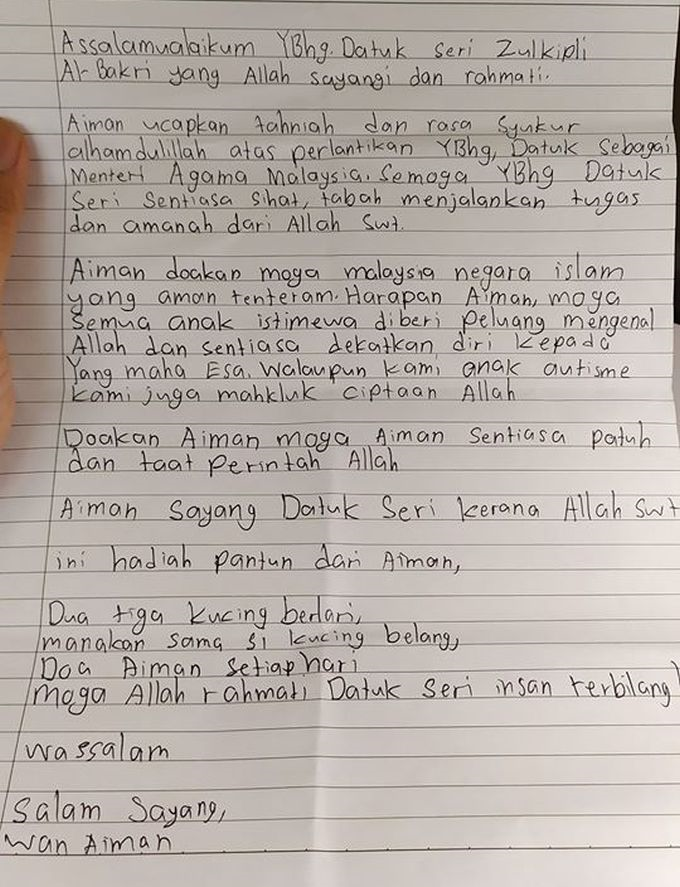 Assalamualaikum YBhg. Datuk Seri Zulkipli
Al-Bakri yang Allah sayangi dan rahmati.
Aiman ucapkan tahniah dan rasa syukur
alhamdulillah atas perlantikan YBhg, Datuk Sebagai
Menteri Agama Malaysia. Semoga YBhg Datuk
Seri Sentiasa Sihat, tabah menjalankan tugas
dan amanah dari Allah Swt.
Aiman doakan moga malaysia negara islam
yang aman tenteram. Harapan Aiman, moga
Semua anak istimewa diberi peluang mengenal
Allah dan sentiasa dekatkan diri kepada
Yang maha Esa. Walaupun kami anak autisme
kami juga mahkluk ciptaan Allah
Doakan Aiman moga Aiman Sentiasa patuh
dan taat perintah Allah
Aiman Sayang Datuk Seri kerana Allah Swt
ini hadiah pantun dari Aiman,
Dua tiga kucing berlari,
manakan sama si kucing belang,
Doa Aiman setiap hari
moga Allah rahmati Datuk Seri insan terbilang
wassalam
Salam Sayang,
Wan Aiman